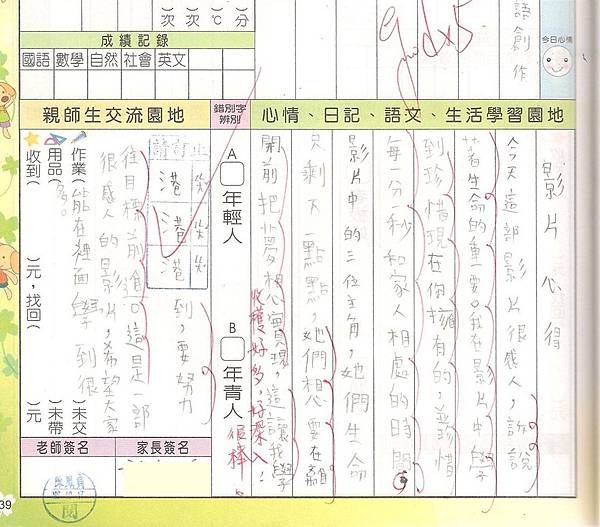 語創作
今日心情
good x5
分
℃
次
次
成績記錄
國語 數學 自然 社會 英文
心情、日記、語文、生活學習園地
錯別字辨別
親師生交流園地
影片心得
今天這部影片很感人，訴說
著生命的重要。我在影片中學
到珍惜現在你擁有的，並珍惜
每一分一秒和家人相處的時間。
影片中的三位主角，她們生命
只剩下一點點，她們想要在離
開前把夢想實現，這讓我學
到，要努力
往目標前進。這是一部
很感人的影片，希望大家
能在裡面學到很
多。
收穫好多，好深入！
很棒！
A
年輕人
B
年青人
請訂正
港
港
港
作業(
)未交
用品(
)未帶
收到(
)元，找回(
)元
老師簽名
家長簽名
閱
39